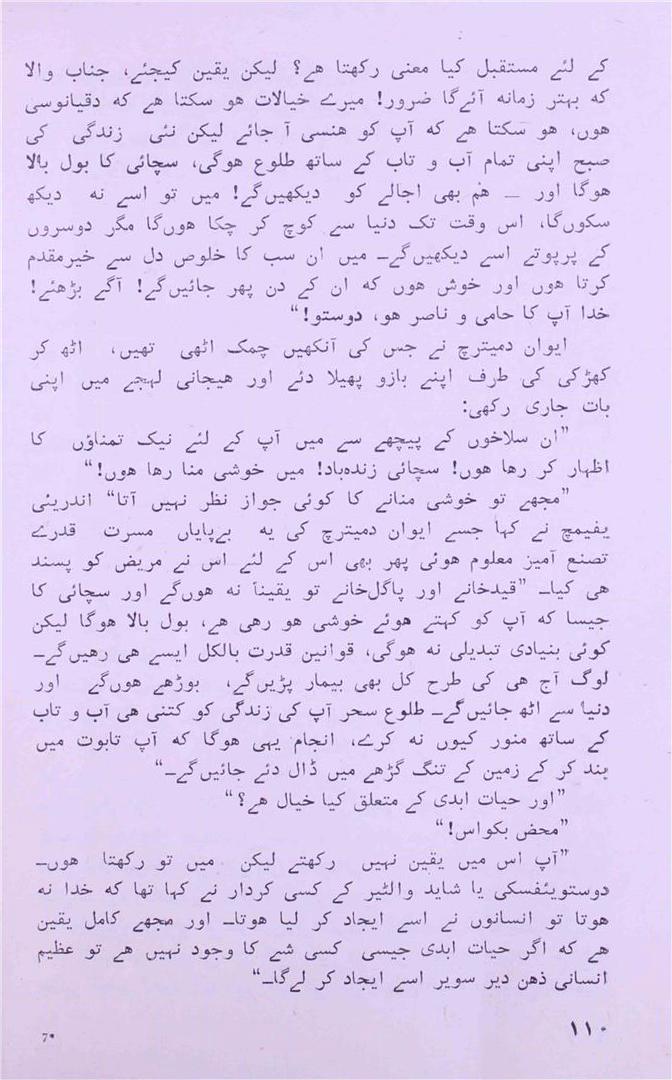 کے لئے مستقبل کیا معنی رکھتا ھے؟ لیکن یقین کیجئے، جناب والا
که بہتر زمانه آئےگا ضرور! میرے خیالات ھو سکتا ھے که دقیانوسی
ھوں، ھو سکتا ھے که آپ کو ھنسی آ جائے لیکن نئی زندگی کی
صبح اپنی تمام آب و تاب کے ساتھ طلوع ھوگی، سچائی کا بول بالا
ھوگا اور — ھم بھی اجالے کو دیکھیںگے! میں تو اسے نه دیکھ
سکوںگا، اس وقت تک دنیا سے کوچ کر چکا ھوںگا مگر دوسروں
کے پرپوتے اسے دیکھیںگے۔ میں ان سب کا خلوص دل سے خیرمقدم
کرتا ھوں اور خوش ھوں که ان کے دن پھر جائیںگے! آگے بڑھئے!
خدا آپ کا حامی و ناصر ھو، دوستو!“
ایوان دمیترچ نے جس کی آنکھیں چمک اٹھی تھیں، اٹھ کر
کھڑکی کی طرف اپنے بازو پھیلا دئے اور ھیجانی لہجے میں اپنی
بات جاری رکھی:
”ان سلاخوں کے پیچھے سے میں آپ کے لئے نیک تمناؤں کا
اظہار کر رھا ھوں! سچائی زندہباد! میں خوشی منا رھا ھوں!“
”مجھے تو خوشی منانے کا کوئی جواز نظر نہیں آتا“ اندریئی
یفیمچ نے کہا جسے ایوان دمیترچ کی یه بےپایاں مسرت قدرے
تصنع آمیز معلوم ھوئی پھر بھی اس کے لئے اس نے مریض کو پسند
ھی کیا۔ ”قیدخانے اور پاگلخانے تو یقیناً نه ھوںگے اور سچائی کا
جیسا که آپ کو کہتے ھوئے خوشی ھو رھی ھے، بول بالا ھوگا لیکن
کوئی بنیادی تبدیلی نه ھوگی، قوانین قدرت بالکل ایسے ھی رھیںگے۔
لوگ آج ھی کی طرح کل بھی بیمار پڑیںگے، بوڑھے ھوںگے اور
دنیا سے اٹھ جائیںگے۔ طلوع سحر آپ کی زندگی کو کتنی ھی آب و تاب
کے ساتھ منور کیوں نه کرے، انجام یہی ھوگا که آپ تابوت میں
بند کر کے زمین کے تنگ گڑھے میں ڈال دئے جائیںگے۔“
”اور حیات ابدی کے متعلق کیا خیال ھے؟“
”محض بکواس!“
”آپ اس میں یقین نہیں رکھتے لیکن میں تو رکھتا ھوں۔
دوستویئفسکی یا شاید والٹیر کے کسی کردار نے کہا تھا که خدا نه
ھوتا تو انسانوں نے اسے ایجاد کر لیا ھوتا۔ اور مجھے کامل یقین
ھے که اگر حیات ابدی جیسی کسی شے کا وجود نہیں ھے تو عظیم
انسانی ذھن دیر سویر اسے ایجاد کر لےگا۔“
۱۱۰
7*